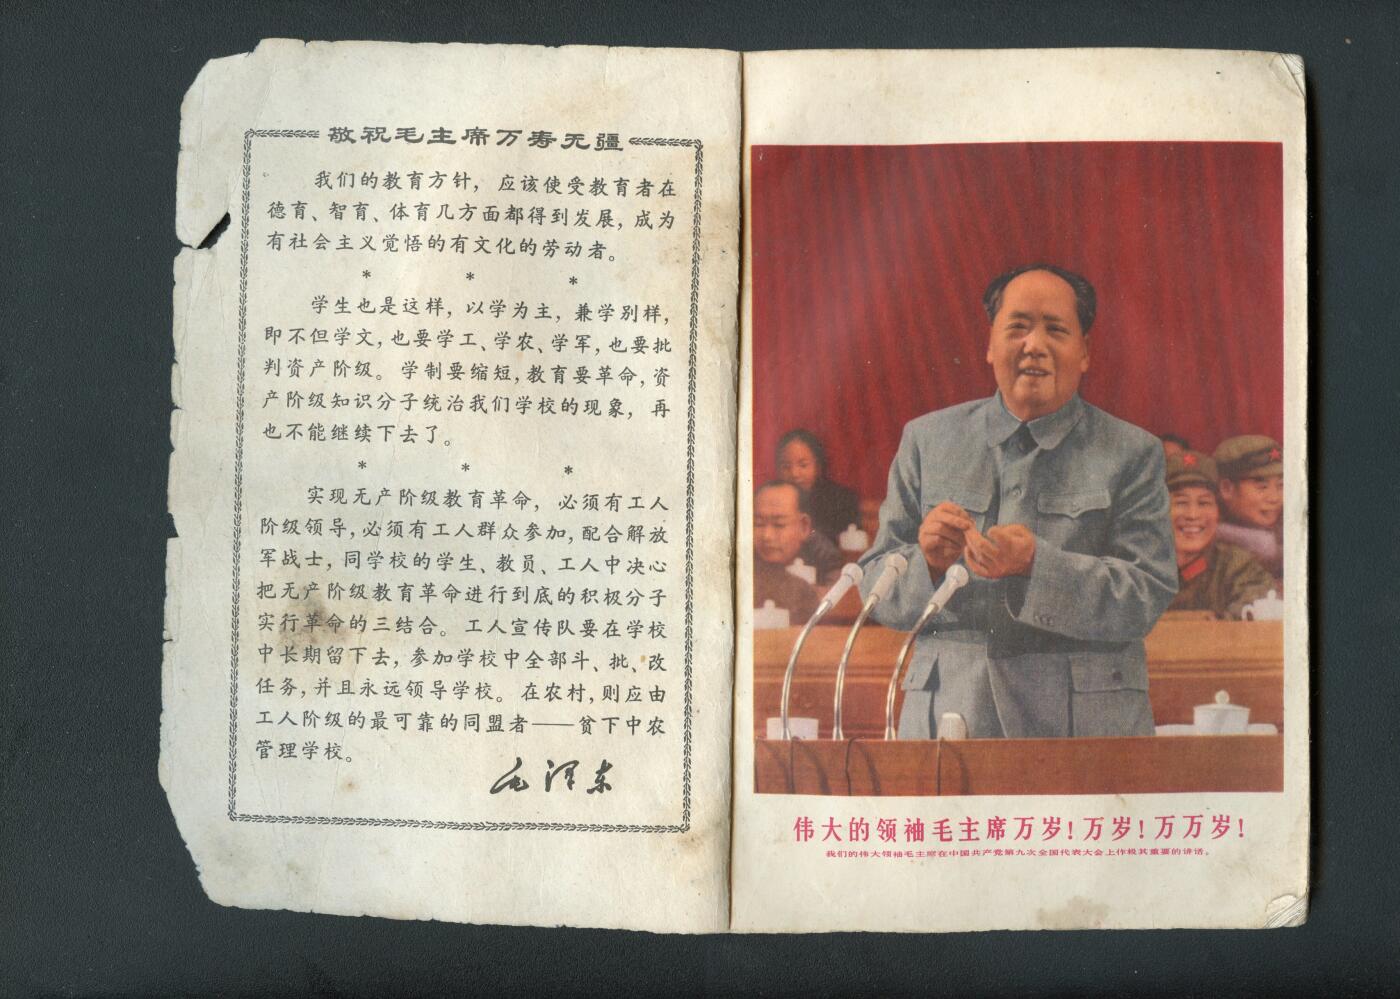 敬祝毛主席万寿无疆
我们的教育方针，应该使受教育者在
德育、智育、体育几方面都得到发展，成为
有社会主义觉悟的有文化的劳动者。
* * *
学生也是这样，以学为主，兼学别样，
即不但学文，也要学工、学农、学军，也要批
判资产阶级。学制要缩短，教育要革命，资
产阶级知识分子统治我们学校的现象，再
也不能继续下去了。
* * *
实现无产阶级教育革命，必须有工人
阶级领导，必须有工人群众参加，配合解放
军战士，同学校的学生、教员、工人中决心
把无产阶级教育革命进行到底的积极分子
实行革命的三结合。工人宣传队要在学校
中长期留下去，参加学校中全部斗、批、改
任务，并且永远领导学校。在农村，则应由
工人阶级的最可靠的同盟者——贫下中农
管理学校。
毛泽东
伟大的领袖毛主席万岁！万岁！万万岁！
我们的伟大领袖毛主席在中国共产党第九次全国代表大会上作极其重要的讲话。